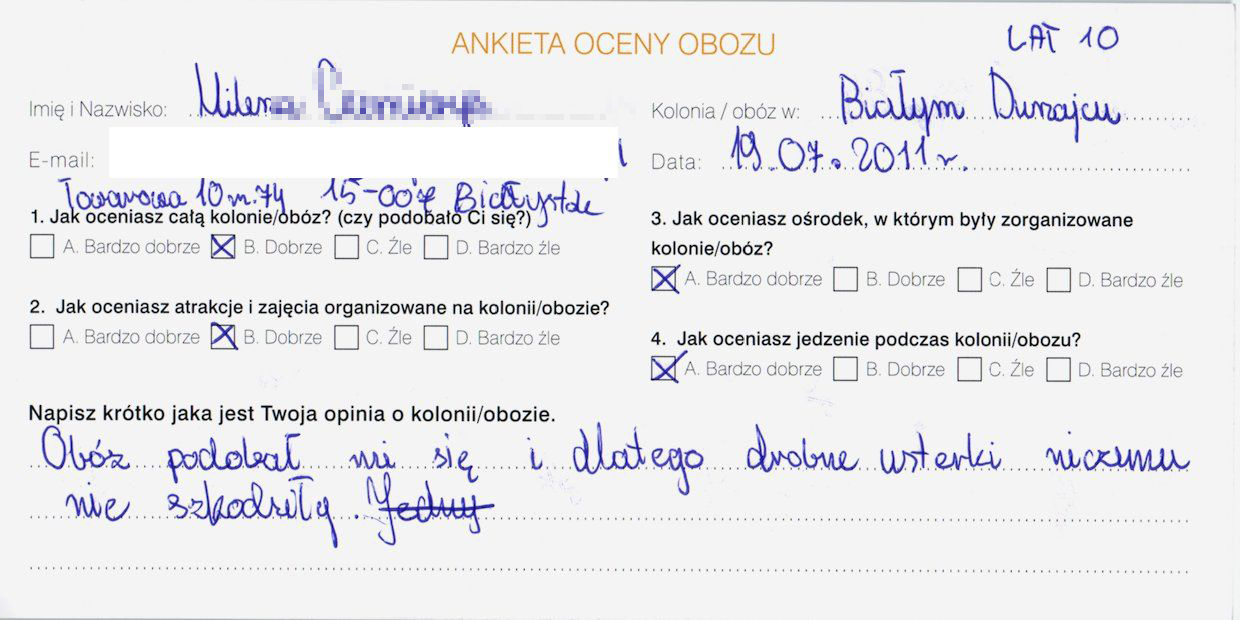 ANKIETA OCENY OBOZU
LAT 10
Imię i Nazwisko: Milena
Kolonia / obóz w: Białym Dunajcu
E-mail:
Data: 19.07.2011r.
Towarowa 10 m.74 15-007 Białystok
1. Jak oceniasz całą kolonie/obóz? (czy podobało Ci się?)
A. Bardzo dobrze B. Dobrze C. Źle D. Bardzo źle
2. Jak oceniasz atrakcje i zajęcia organizowane na kolonii/obozie?
A. Bardzo dobrze B. Dobrze C. Źle D. Bardzo źle
3. Jak oceniasz ośrodek, w którym były zorganizowane
kolonie/obóz?
A. Bardzo dobrze B. Dobrze C. Źle D. Bardzo źle
4. Jak oceniasz jedzenie podczas kolonii/obozu?
A. Bardzo dobrze B. Dobrze C. Źle D. Bardzo źle
Napisz krótko jaka jest Twoja opinia o kolonii/obozie.
Obóz podobał mi się i dlatego drobne usterki niczemu
nie szkodziły.